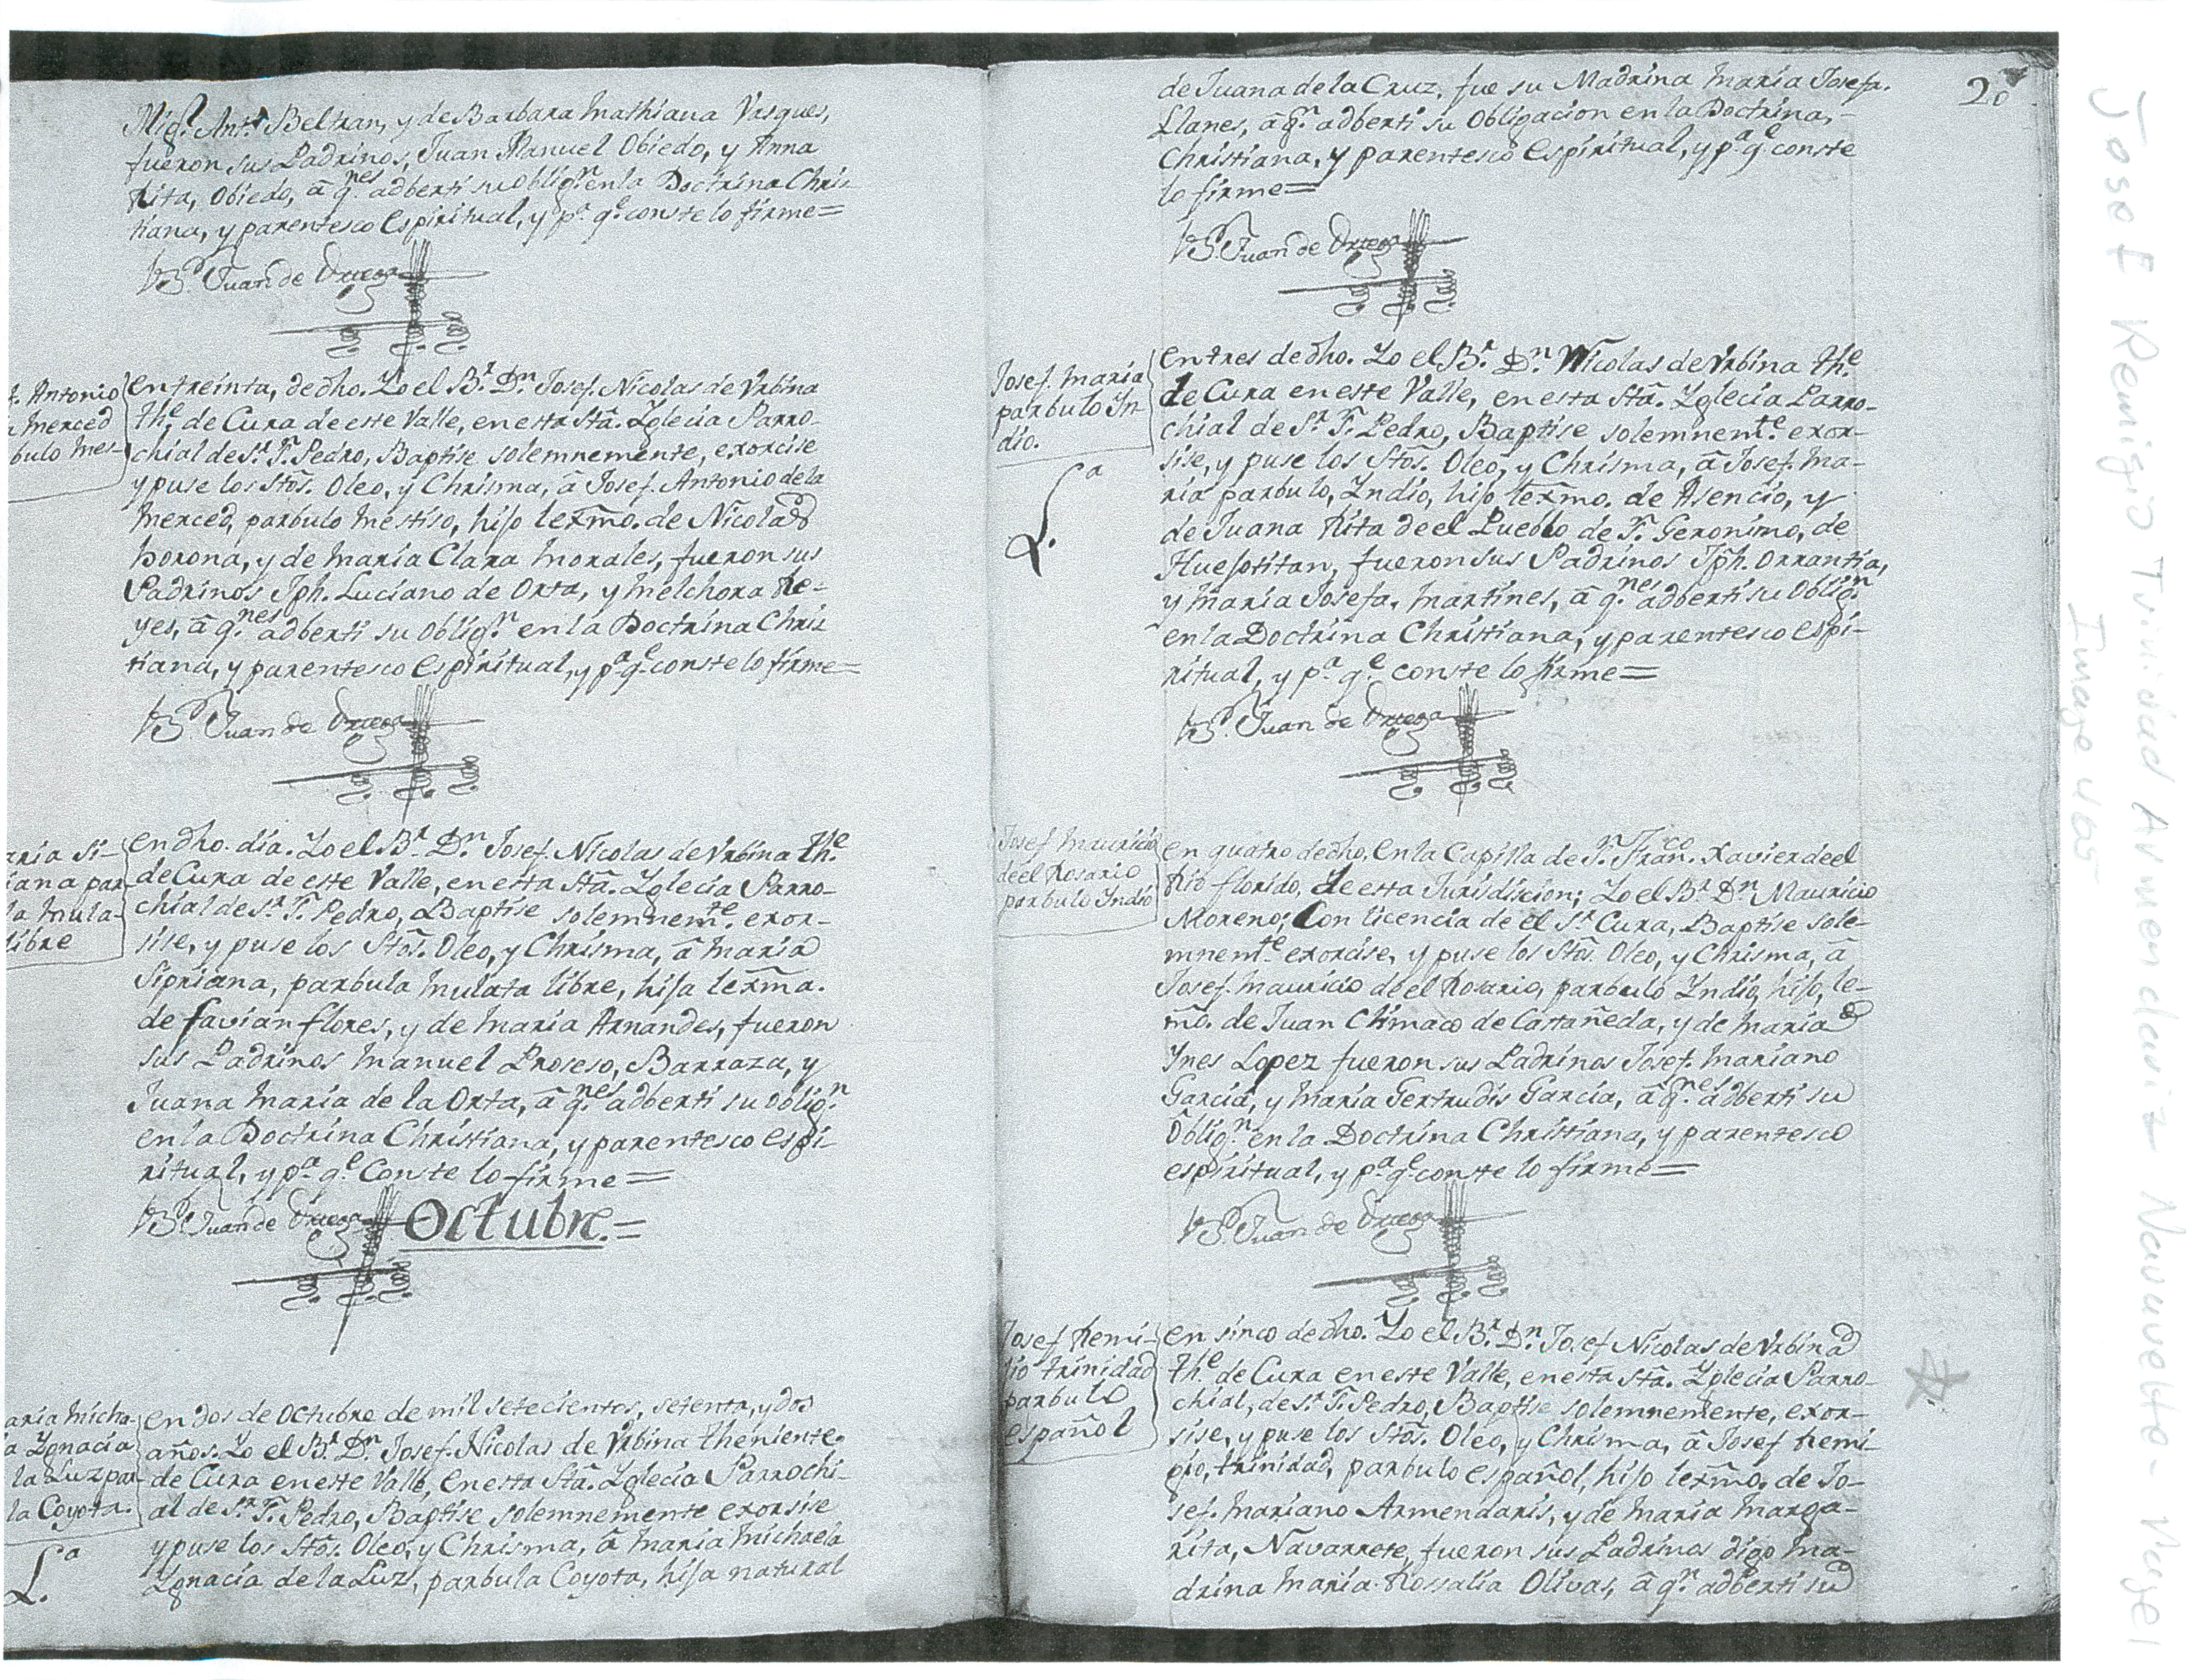 Mig.l Ant.o Beltran, y de Barbara Mathiana Vasques,
fueron sus Padrinos, Juan Manuel Obiedo, y Anna
Rita, Obiedo, â q.nes adberti su oblig.n en la Doctrina Chris
tiana, y parentesco Espiritual, y p.a q.e conste lo firme=
B.r Juan de Ortega
t. Antonio
Merced
bulo mes-
en treinta, de dho. Yo el B.r D.n Josef. Nicolas de Vrbina
th.e de Cura de este Valle, en esta Stã. Yglecia Parro-
chial de S.r S. Pedro, Baptise solemnemente, exorcise
y puse los Stõs. Oleo, y Chrisma, â Josef. Antonio de la
Merced, parbulo mestiso, hijo lexm̃o. de Nicolas
horona, y de Maria Clara Morales, fueron sus
Padrinos Jph. Luciano de Orta, y Melchora Re-
yes, â q.nes adberti su oblig.n en la Doctrina Chris
tiana, y parentesco Espiritual, y p.a q.e conste lo firme=
B.r Juan de Ortega
aria Si-
iana par-
la mula-
libre
en dho. dia. Yo el B.r D.n Josef. Nicolas de Vrbina th.e
de Cura de este Valle, en esta Stã. Yglecia Parro-
chial de S.r S. Pedro, Baptise solemnem.te exor-
sise, y puse los Stõs. Oleo, y Chrisma, â maria
Sipriana, parbula mulata libre, hija lexm̃a.
de favian flores, y de maria Arnandes, fueron
sus Padrinos Manuel Proseso, Barraza, y
Juana Maria de la Orta, â q.nes adberti su oblig.n
en la Doctrina Christiana, y parentesco espi-
ritual, y p.a q.e Conste lo firme=
B.r Juan de Ortega
Octubre.=
aria Micha-
a Ygnacia
la Luz par-
la Coyota.
L.a
en dos de Octubre de mil setecientos, setenta, y dos
años. Yo el B.r D.n Josef. Nicolas de Vrbina theniente
de Cura en este Valle, en esta Stã. Yglecia Parrochi-
al de S.r S. Pedro, Baptise solemnemente exorsise
y puse los Stõs. Oleo, y Chrisma, â maria Michaela
Ygnacia de la Luz, parbula Coyota, hija natural
20
de Juana de la Cruz, fue su Madrina Maria Josefa.
Llanes, â q.n adberti su Obligacion en la Doctrina,
Christiana, y parentesco Espiritual, y p.a q.e conste
lo firme=
B.r Juan de Ortega
Josef. Maria
parbulo Yn-
dio.
L.a
en tres de dho. Yo el B.r D.n Nicolas de Vrbina th.e
de Cura en este Valle, en esta Stã. Yglecia Parro-
chial de S.r S. Pedro, Baptise solemnem.te exor-
sise, y puse los Stõs. Oleo, y Chrisma, â Josef. Ma-
ria parbulo, Yndio, hijo lexm̃o. de Asencio, y
de Juana Rita de el Pueblo de S. Geronimo, de
Huejotitan, fueron sus Padrinos Jph. Orrantia,
y Maria Josefa, Martines, â q.nes adberti su Oblig.n
en la Doctrina Christiana, y parentesco espi-
ritual, y p.a q.e conste lo firme=
B.r Juan de Ortega
Josef Mauricio
de el Rosario
parbulo Yndio
en quatro de dho. En la Capilla de S.n Fran.co Xavier de el
Rio florido, de esta Jurisdision; Yo el B.r D.n Mauricio
Moreno; Con licencia de el S.r Cura, Baptise sole-
mnem.te exorsise, y puse los Stõs. Oleo, y Chrisma, â
Josef. Mauricio de el Rosario, parbulo Yndio, hijo, le-
m̃o. de Juan Climaco de Castañeda, y de Maria
Ynes Lopez fueron sus Padrinos Josef. Mariano
Garcia, y Maria Gertrudis Garcia, â q.nes adberti su
Oblig.n en la Doctrina Christiana, y parentesco
espiritual, y p.a q.e conste lo firme=
B.r Juan de Ortega
Josef Remi-
jio trinidad
parbulo
español
en sinco de dho. Yo el B.r D.n Josef Nicolas de Vrbina
th.e de Cura en este Valle, en esta Stã. Yglecia Parro-
chial, de S.r S. Pedro, Baptise solemnemente, exor-
sise, y puse los Stõs. Oleo, y Chrisma, â Josef Remi-
gio, trinidad, parbulo español, hijo lexm̃o. de Jo-
sef. Mariano Armendaris, y de Maria Marga-
rita, Navarrete, fueron sus Padrinos digo Ma-
drina Maria Rossalia Olivas, â q.n adberti su
Jose Remigio Trinidad Armendariz - Navarrete - Pagel
Image 405